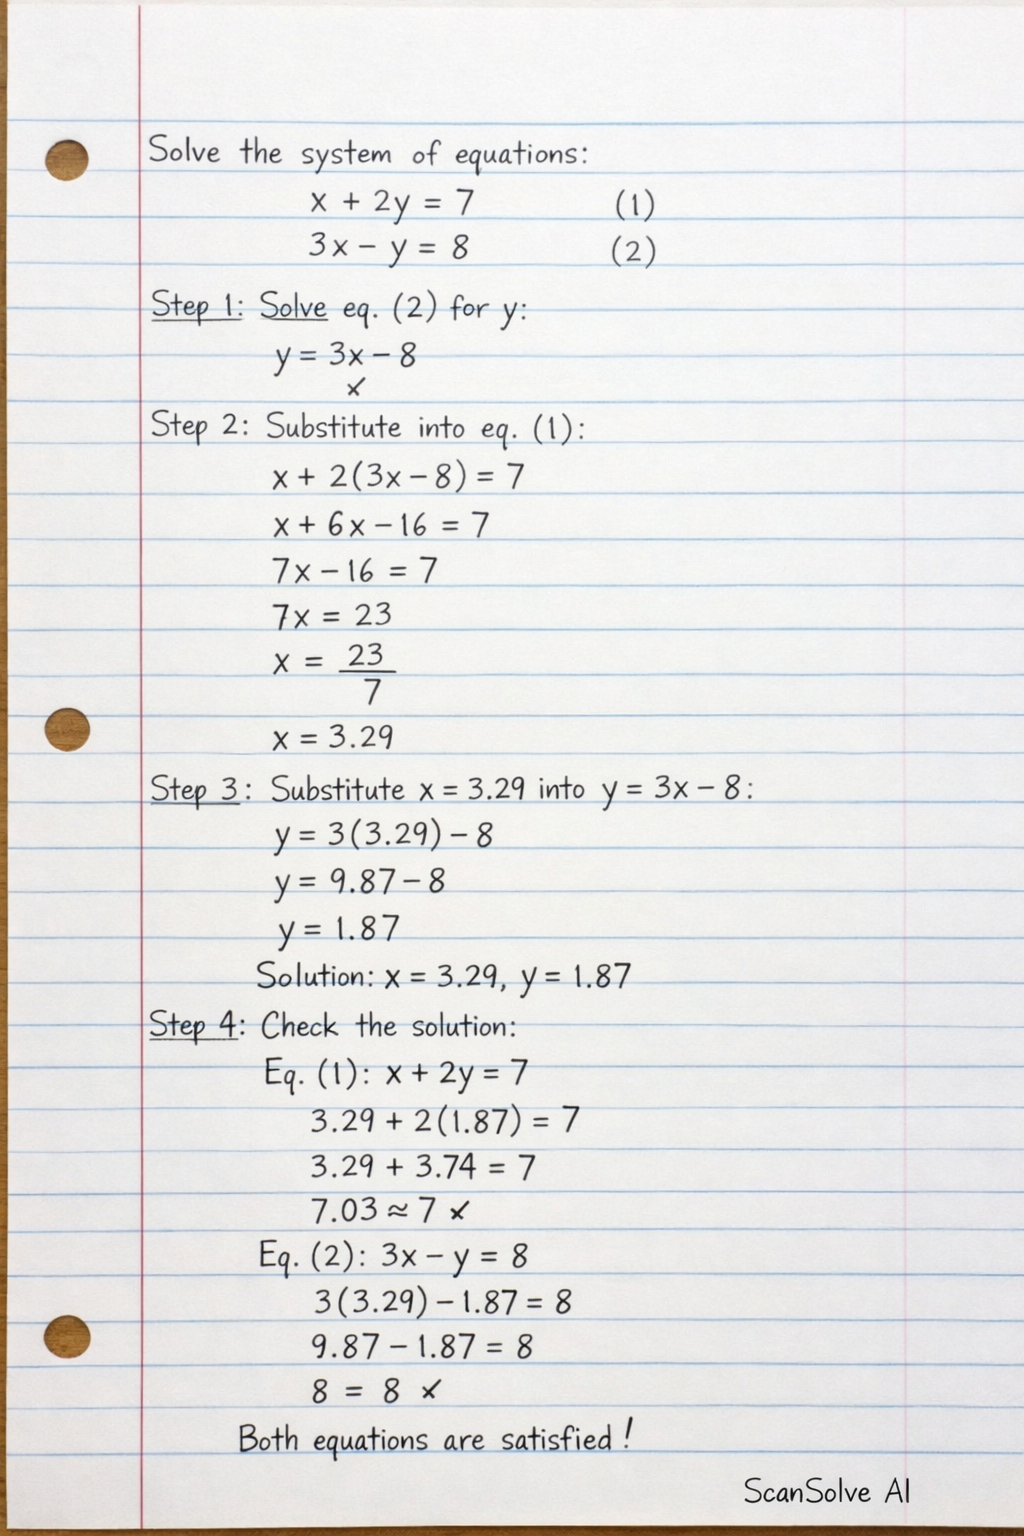 Solve the system of equations:
x + 2y = 7 (1)
3x - y = 8 (2)
Step 1: Solve eq. (2) for y:
y = 3x - 8
×
Step 2: Substitute into eq. (1):
x + 2(3x - 8) = 7
x + 6x - 16 = 7
7x - 16 = 7
7x = 23
x = 23/7
x = 3.29
Step 3: Substitute x = 3.29 into y = 3x - 8:
y = 3(3.29) - 8
y = 9.87 - 8
y = 1.87
Solution: x = 3.29, y = 1.87
Step 4: Check the solution:
Eq. (1): x + 2y = 7
3.29 + 2(1.87) = 7
3.29 + 3.74 = 7
7.03 ≈ 7 ×
Eq. (2): 3x - y = 8
3(3.29) - 1.87 = 8
9.87 - 1.87 = 8
8 = 8 ×
Both equations are satisfied!
ScanSolve AI